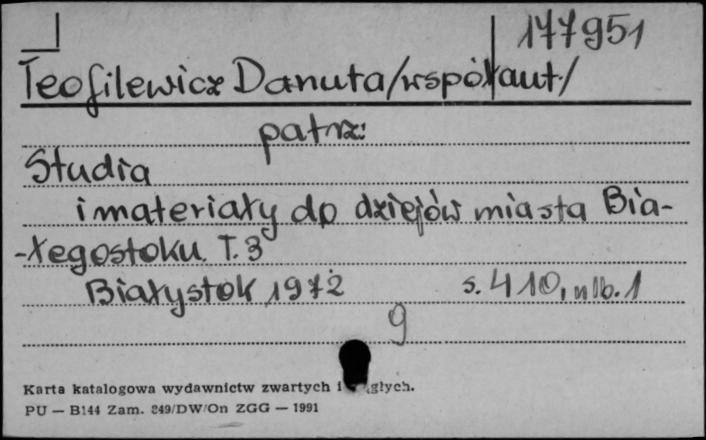 177951
Teofilewicz Danuta/współaut/
patrz:
Studia
i materiały do dziejów miasta Bia-
-łegostoku. T. 3
Białystok 1972 s. 410, nlb. 1
9
Karta katalogowa wydawnictw zwartych i
PU — B144 Zam. 849/DW/On ZGG — 1991